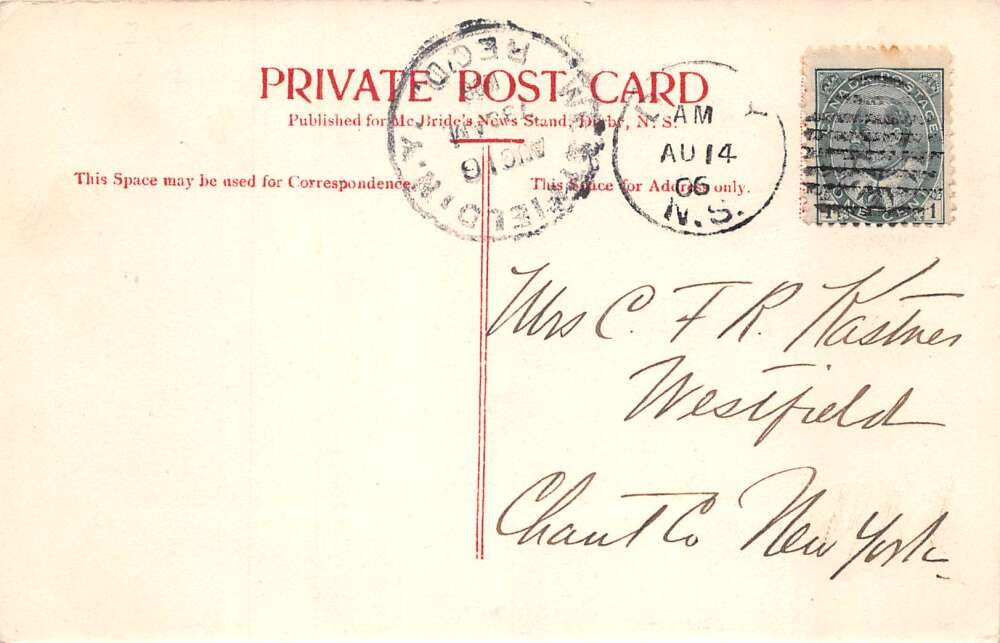 PRIVATE POST CARD
Published for Mc Bride's News Stand, Digby, N. S.
This Space may be used for Correspondence.
This Space for Address only.
REC'D.
AUG 16
FIELD N.Y.
AM
AU 14
06
N.S.
CANADA POSTAGE
1 ONE CENT 1
Mrs C. F R. Kastner
Westfield
Chaut Co New York